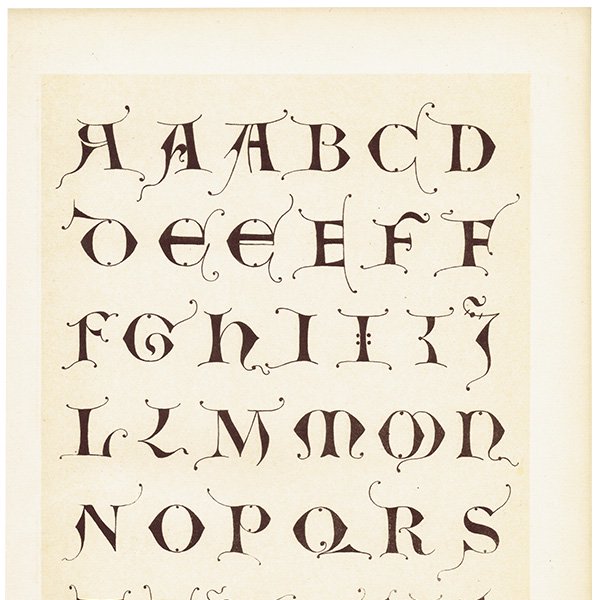 A A A B C D
D E E E F F
F G H I I K J
L L M M M N
N O P Q R S